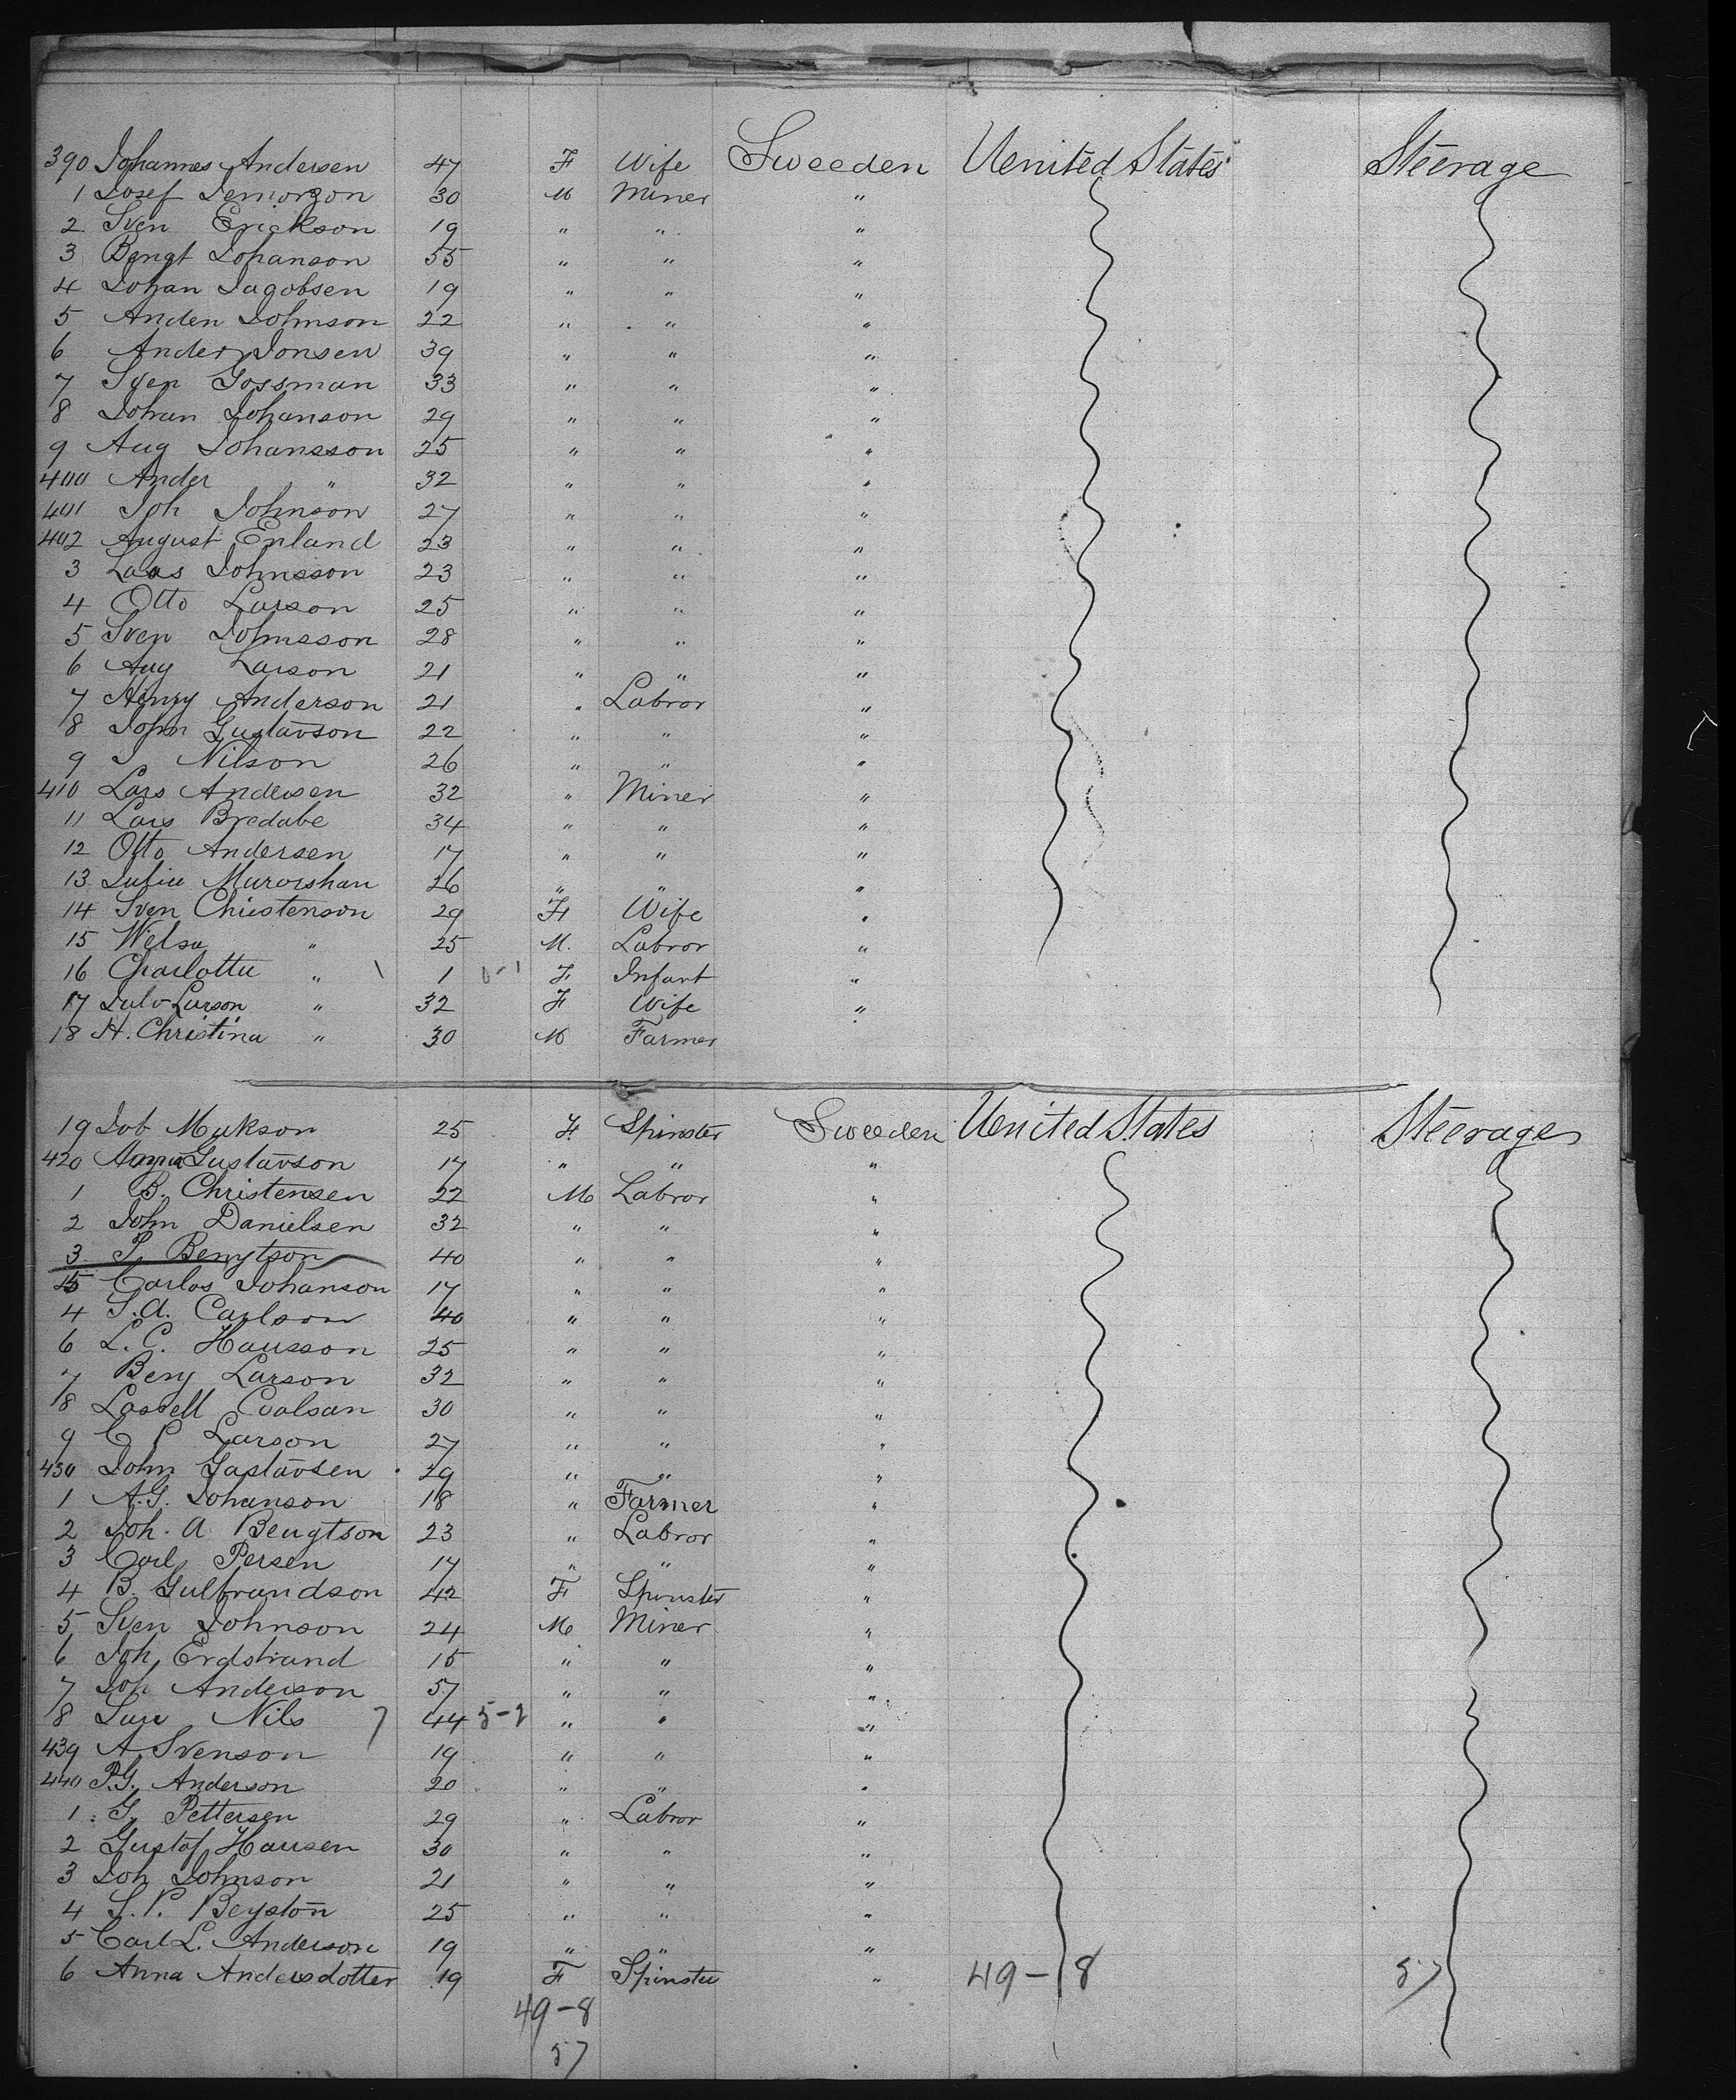 390 Johannes Andersen 47 F Wife Sweeden Uenited States Steerage
1 Josef 30 M Miner "
2 Sven Erickson 19 " " "
3 Bengt Johanson 55 " " "
4 Johan Jagobsen 19 " " "
5 Anden Johnson 22 " " "
6 Ander Jonsen 39 " " "
7 Sven Gossman 33 " " "
8 Johan Johanson 29 " " "
9 Aug Johansson 25 " " "
400 Ander " 32 " " "
401 Joh Johnson 27 " " "
402 August Enland 23 " " "
3 Laas Johnsson 23 " " "
4 Otto Larson 25 " " "
5 Sven Johnsson 28 " " "
6 Aug Larson 21 " " "
7 Henry Anderson 21 " Labror "
8 John Gustavson 22 " " "
9 J Nilson 26 " " "
410 Lars Andersen 32 " Miner "
11 Lars Bredabe 34 " " "
12 Otto Andersen 17 " " "
13 26 " " "
14 Sven Christenson 29 F Wife "
15 " 25 M. Labror "
16 Charlotta " 1 F Infant "
17 Larson " 32 F Wife "
18 H. Christina " 30 M Farmer
19 25 F Spinster Sweeden Uenited States Steerage
420 Anna Gustavson 17 " " "
1 B. Christensen 22 M Labror "
2 John Danielsen 32 " " "
3 Bengtson 40 " " "
5 Carlos Johanson 17 " " "
4 S.A. Carlson 40 " " "
6 L. C. Hausson 25 " " "
7 Beng Larson 32 " " "
8 Lassell 30 " " "
9 C P Larson 27 " " "
430 John Gastavsen 29 " " "
1 A.G. Johanson 18 " Farmer "
2 Joh. A Bengtson 23 " Labror "
3 Carl Persen 17 " " "
4 B. Gulbrandson 42 F Spinster "
5 Sven Johnson 24 M Miner "
6 Joh Erdstrand 15 " " "
7 Joh Anderson 57 " " "
8 Nils 44 " " "
439 A Svenson 19 " " "
440 P.G. Anderson 20 " " "
1 G. Pettersen 29 " Labror "
2 Gustof Hausen 30 " " "
3 Joh Johnson 21 " " "
4 S. P. Beyston 25 " " "
5 Carl L. Anderson 19 " " "
6 Anna Andersdotter 19 F Spinster " 49-8 57
49-8
57